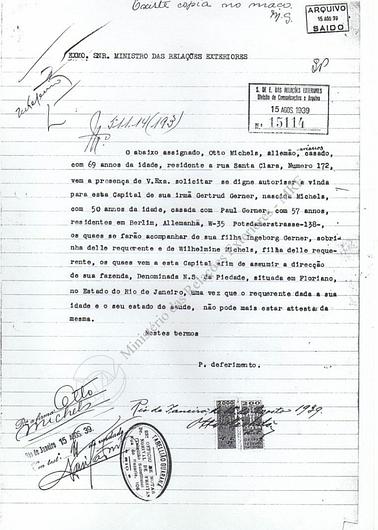 Existe copia no maço.
M.S.
ARQUIVO
15 AGS 39
SAIDO
EXMO. SNR. MINISTRO DAS RELAÇÕES EXTERIORES
S. DE E. DAS RELAÇÕES EXTERIORES
Divisão de Comunicações e Arquivo
15 AGOS. 1939
N.º 15114
511.14(193)
O abaixo assignado, Otto Michels, allemão, casado,
com 69 annos da idade, residente a rua Santa Clara, Numero 172,
vem a presença de V.Exa. solicitar se digne autorisar a vinda
para esta Capital de sua irmã Gertrud Gerner, nascida Michels,
com 50 annos de idade, casada com Paul Gerner, com 57 annos,
residentes em Berlim, Allemanhã, W-35 Potsdamerstrasse-138-,
os quaes se farão acompanhar de sua filha Ingeborg Gerner, sobri-
nha delle requerente e de Wilhelmine Michels, filha delle reque-
rente, os quaes vem a esta Capital afim de assumir a direcção
de sua fazenda, Denominada N.S. da Piedade, situada em Floriano,
no Estado do Rio de Janeiro, uma vez que o requerente dada a sua
idade e o seu estado de saude, não pode mais estar attesta da
mesma.
Nestes termos
P. deferimento.
Rio de Janeiro 15 de Agosto 1939.
Otto
Michels
Rio de Janeiro 15 AGOS. 39.
TABELLIÃO